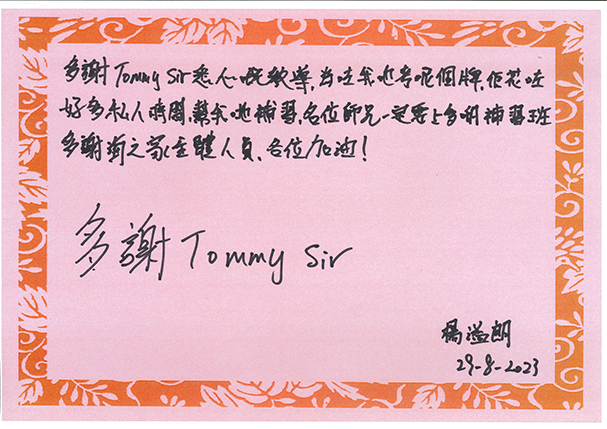 多謝 Tommy Sir 悉心教導,当咗我地考呢個牌,佢花咗
好多私人時間,幫我地補習,各位師兄一定要上多啲補習班
多謝 之家全體人員、各位加油!
多謝 Tommy Sir
楊溢朗
29-8-2023